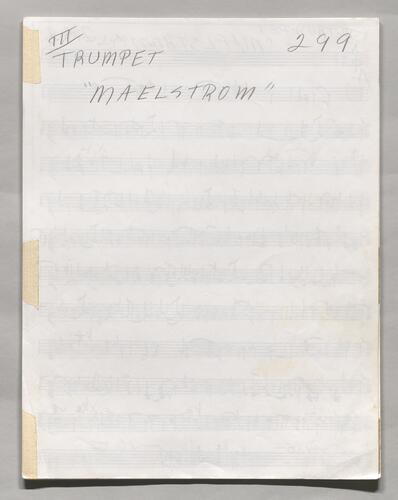 III
TRUMPET
299
"MAELSTROM"